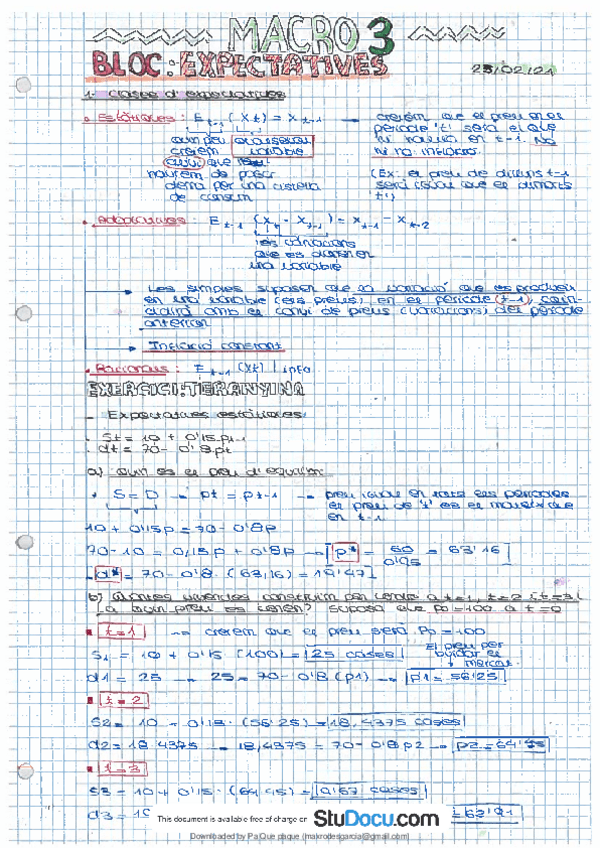 MACRO 3
BLOC: EXPECTATIVES
25/02/21
1. Clases d'expectatives
• Estàtiques: E t-1 (Xt) = X t-1 → creiem que el preu en el
període 't' serà el que
hi havia en t-1. No
hi ha inflació.
quin preu
creiem
avui que
haurem de pagar
demà per una cistella
de consum
qualsevol
variable
(Ex: el preu de dilluns t-1
serà igual que el dimarts
't')
• Adaptatives: E t-1 (Xt - X t-1) = X t-1 - X t-2
les variacions
que es donen en
una variable
→ Les simples suposen que la variació que es produeix
en una variable (els preus) en el període (t-1) coin-
cidirà amb el canvi de preus (variacions) del període
anterior
→ Inflació constant
• Racionals: E t-1 (Xt) | info
EXERCICI: TERANYINA
- Expectatives estàtiques
· St = 10 + 0'15 pt-1
· dt = 70 - 0'8 pt
a) Quin és el preu d'equilibri
• S = D → pt = pt-1 → preu igual en tots els períodes
el preu de 't' és el mateix que
en t-1
10 + 0'15p = 70 - 0'8p
70 - 10 = 0,15p + 0'8p → p* = 60/0'95 = 63'16
d* = 70 - 0'8 · (63,16) = 19'47
b) Quantes vivències construïm per vendre a t=1, t=2 i t=3 i
a quin preu es venen? Suposa que p0 = 100 a t=0
• t=1 → creiem que el preu serà P0 = 100
S1 = 10 + 0'15 · (100) = 25 cases
El preu per
buidar el
mercat
d1 = 25 → 25 = 70 - 0'8 (p1) → p1 = 56'25
• t=2
S2 = 10 + 0'15 · (56'25) = 18,4375 cases
d2 = 18'4375 → 18,4375 = 70 - 0'8 p2 → p2 = 64'45
• t=3
S3 = 10 + 0'15 · (64'45) =
d3 = 19
This document is available free of charge on StuDocu.com
Downloaded by Pa Que pague (makrodesgarcia@gmail.com)